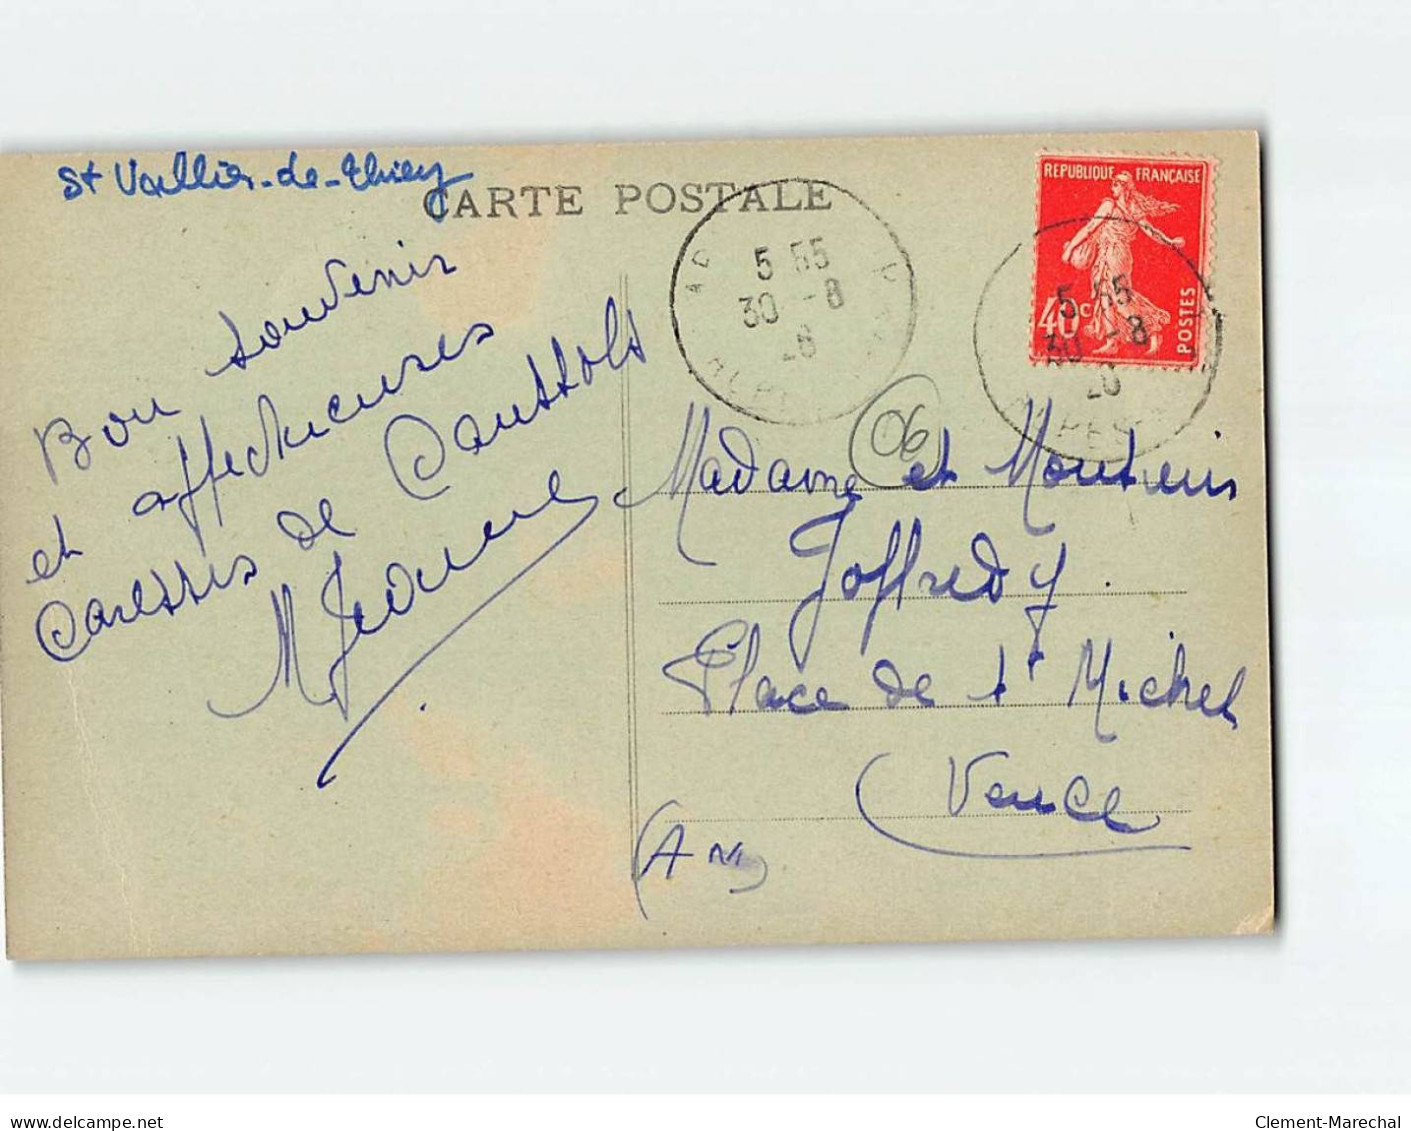 St Vallier-de-Thiey
CARTE POSTALE
Bon souvenir
et affectueuses
Caresses de Caussols
M Jeanne
5 55
30 -8
26
REPUBLIQUE FRANÇAISE
40c
POSTES
5 55
30 -8
26
06
Madame et Monsieur
Joffredy
Place de St Michel
Vence
(A M)
www.delcampe.net
Clement-Marechal